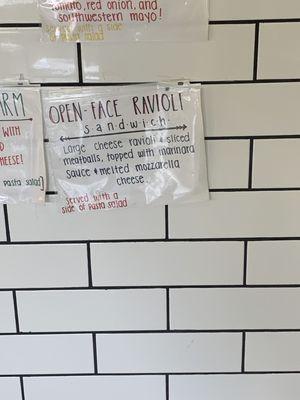 tomato, red onion, and
southwestern mayo!
served with a side
of pasta salad
ARM
WITH
D
CHEESE!
pasta salad
OPEN-FACE RAVIOLI
sandwich
Large cheese ravioli & sliced
meatballs, topped with marinara
sauce & melted mozzarella
cheese.
served with a
side of pasta salad